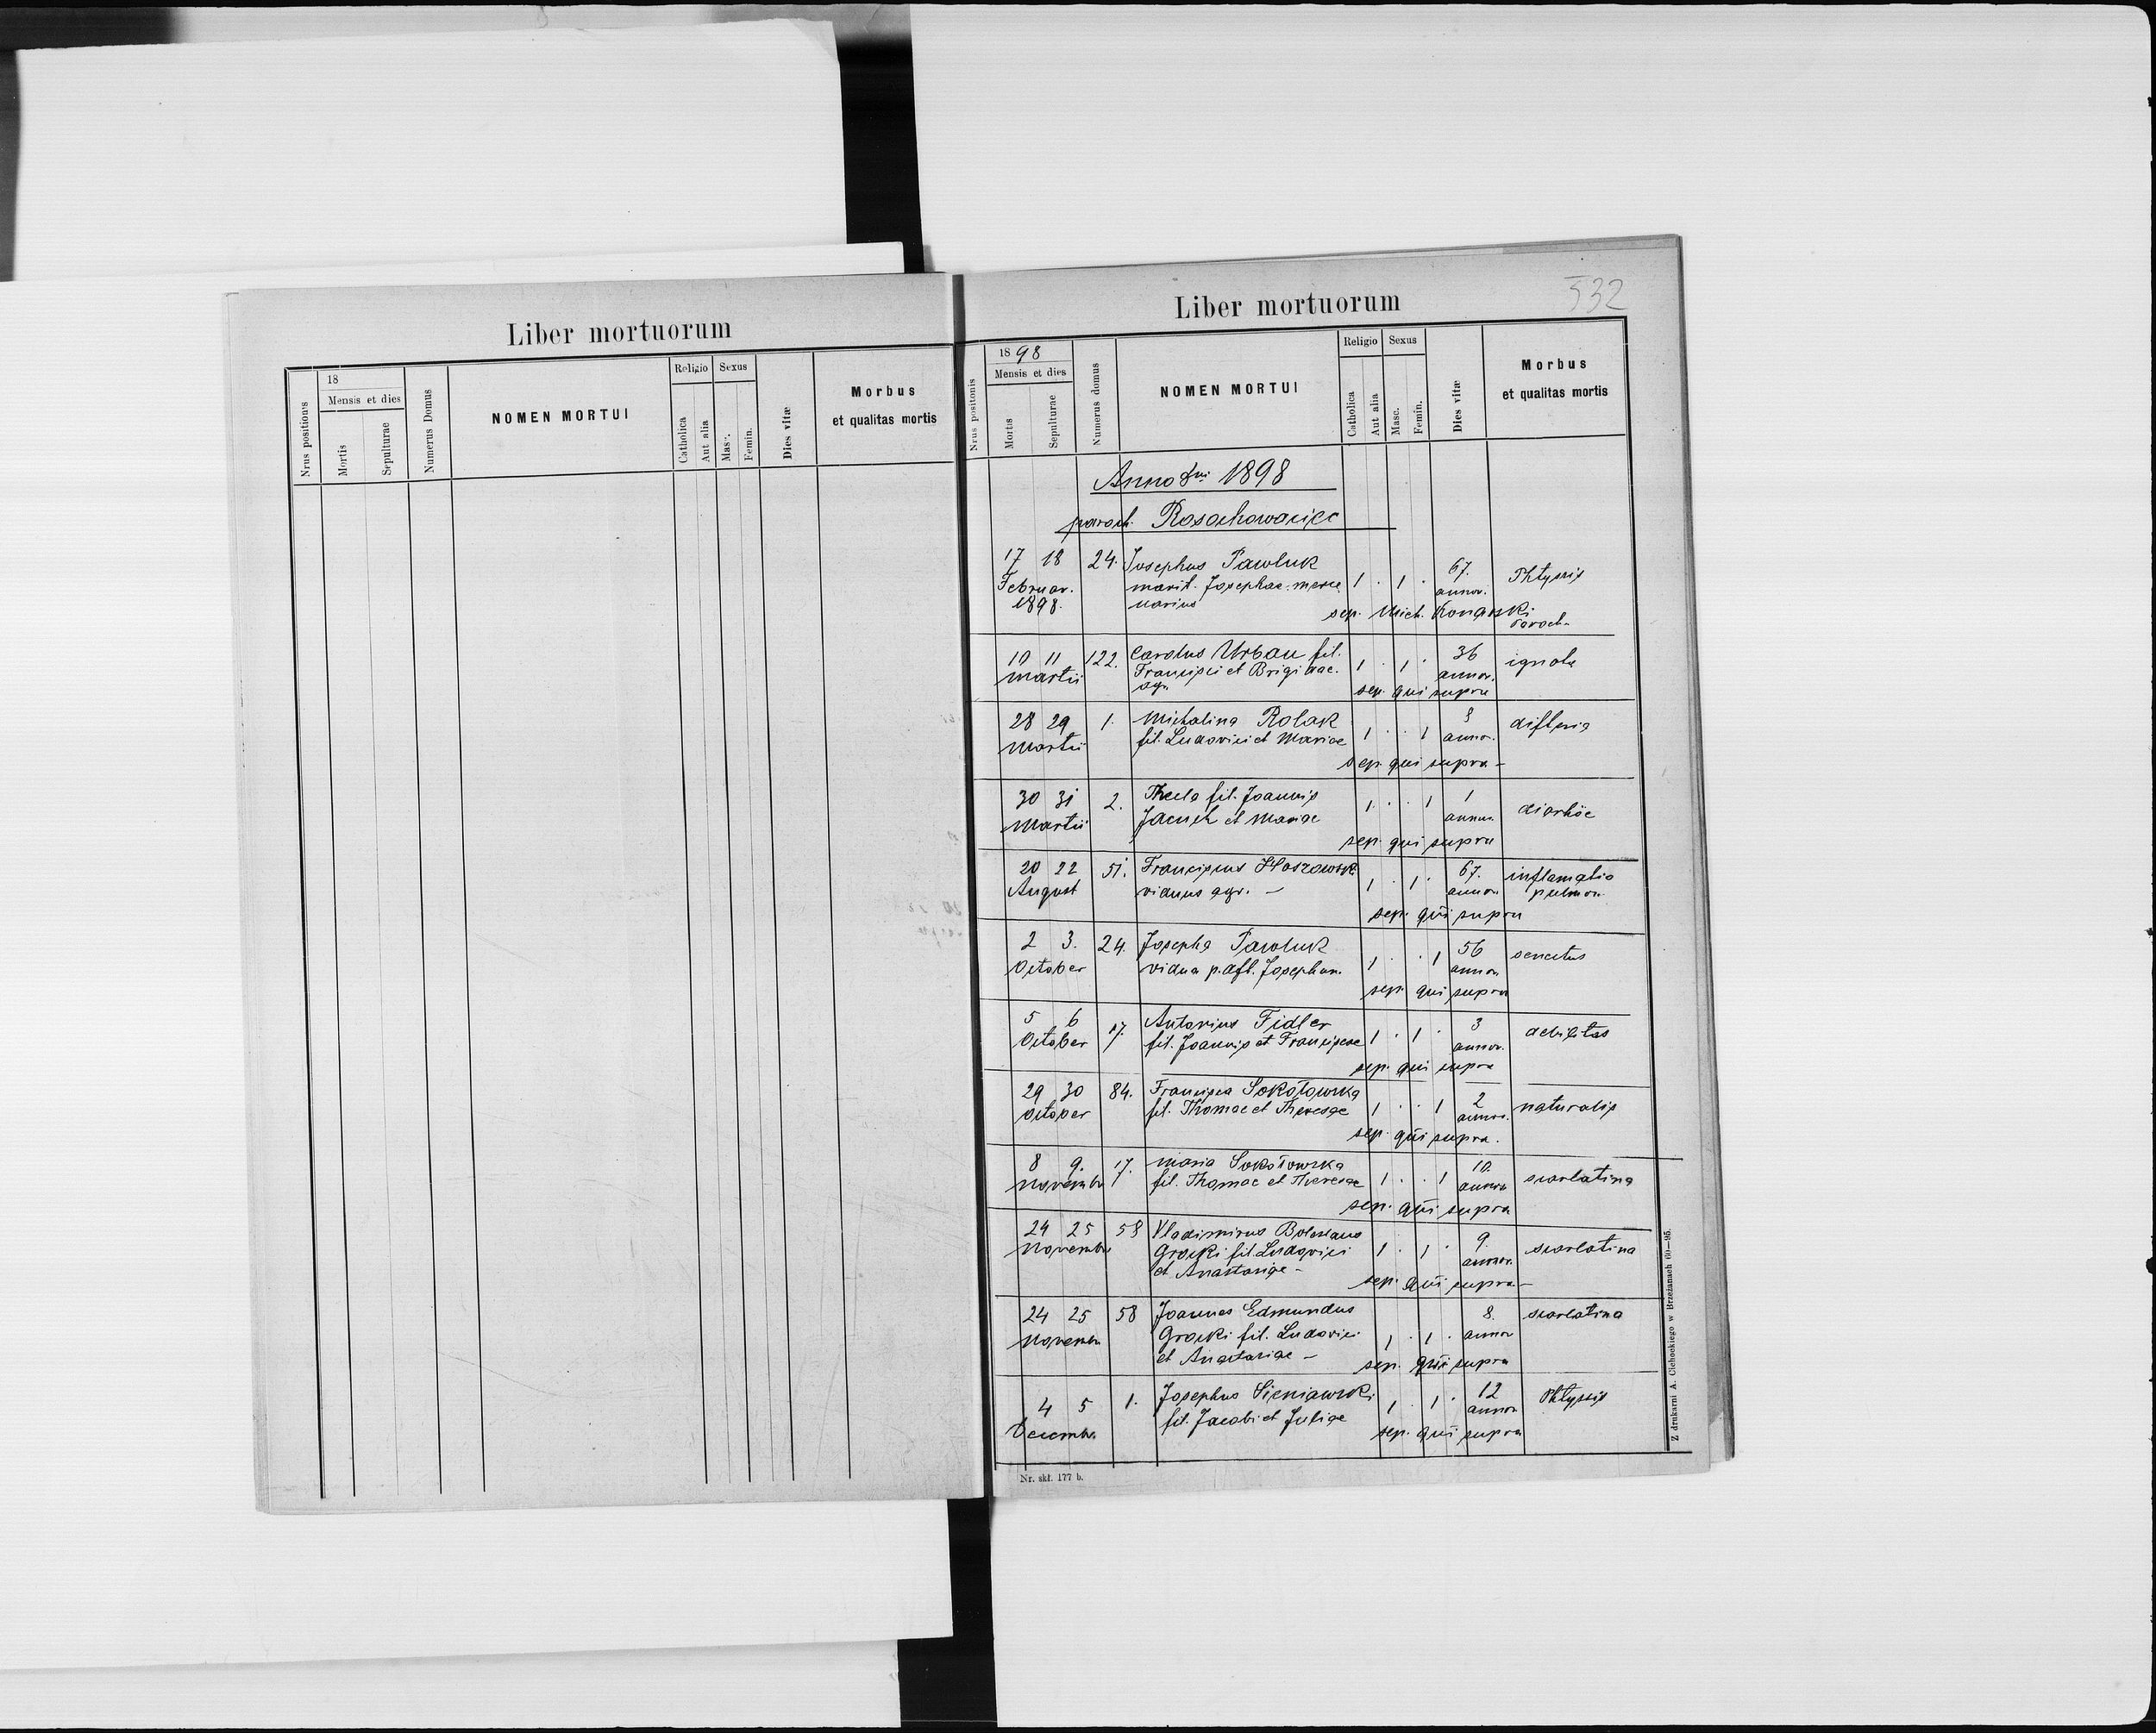 Liber mortuorum
Nrus positionis
18
Mensis et dies
Mortis
Sepulturae
Numerus Domus
NOMEN MORTUI
Religio
Catholica
Aut alia
Sexus
Masc.
Femin.
Dies vitæ
Morbus
et qualitas mortis
532
Liber mortuorum
Nrus positonis
1898
Mensis et dies
Mortis
Sepulturae
Numerus domus
NOMEN MORTUI
Religio
Catholica
Aut alia
Sexus
Masc.
Femin.
Dies vitæ
Morbus
et qualitas mortis
Anno Dni 1898
paroch. Rosochowaciec
17 18 24. Josephus Pawluk 67.
Februar. marit. Josephae. merce 1 . 1 . annor. Phtysis
1898. narius sep. Mich. Konarski
paroch.
10 11 122. Carolus Urban fil. 36 ignota
Martii Francisci et Brigidae. 1 . 1 . annor.
agr. sep. qui supra
28 29 1. Michalina Rolak difteria
Martii fil. Ludovici et Mariae 1 . . 1 annor.
sep. qui supra -
30 31 2. Thecla fil. Joannis 1. . . 1 1
Martii et Mariae annus. diarhöe
sep. qui supra
20 22 51. Franciscus 67. inflamatio
August viduus agr. - 1 . 1 . annor. pulmon.
sep. qui supra
2 3. 24. Josepha Pawluk 56 senectus
October vidua p. dft. Josephum. 1 . . 1 annor
sep. qui supra
5 6 17. Antonius Fidler 3 debilitas
October fil. Joannis et Franciscae 1 . 1 . annor.
sep. qui supra
29 30 84. Francisca Sokołowska 2 naturalis
October fil. Thomae et Theresae 1 . . 1 annor.
sep. qui supra.
8 9. 17. Maria Sokołowska 10. scarlatina
Novembr fil. Thomae et Theresae 1 . . 1 annor
sep. qui supra
24 25 58 Vladimirus Boleslaus 9. scarlatina
Novembr Grocki fil. Ludovici 1 . 1 . annor.
et Anastasiae - sep. qui supra -
24 25 58 Joannes Edmundus 8. scarlatina
Novembr Grocki fil. Ludovici 1 . 1 . annor
et Anastasiae - sep. qui supra
4 5 1. Josephus Sieniawski 12 Phtysis
Decembr. fil. Jacobi et Juliae 1 . 1 . annor
sep. qui supra
Nr. skł. 177 b.
Z drukarni A. Cichockiego w Brzeżanach 60—95.